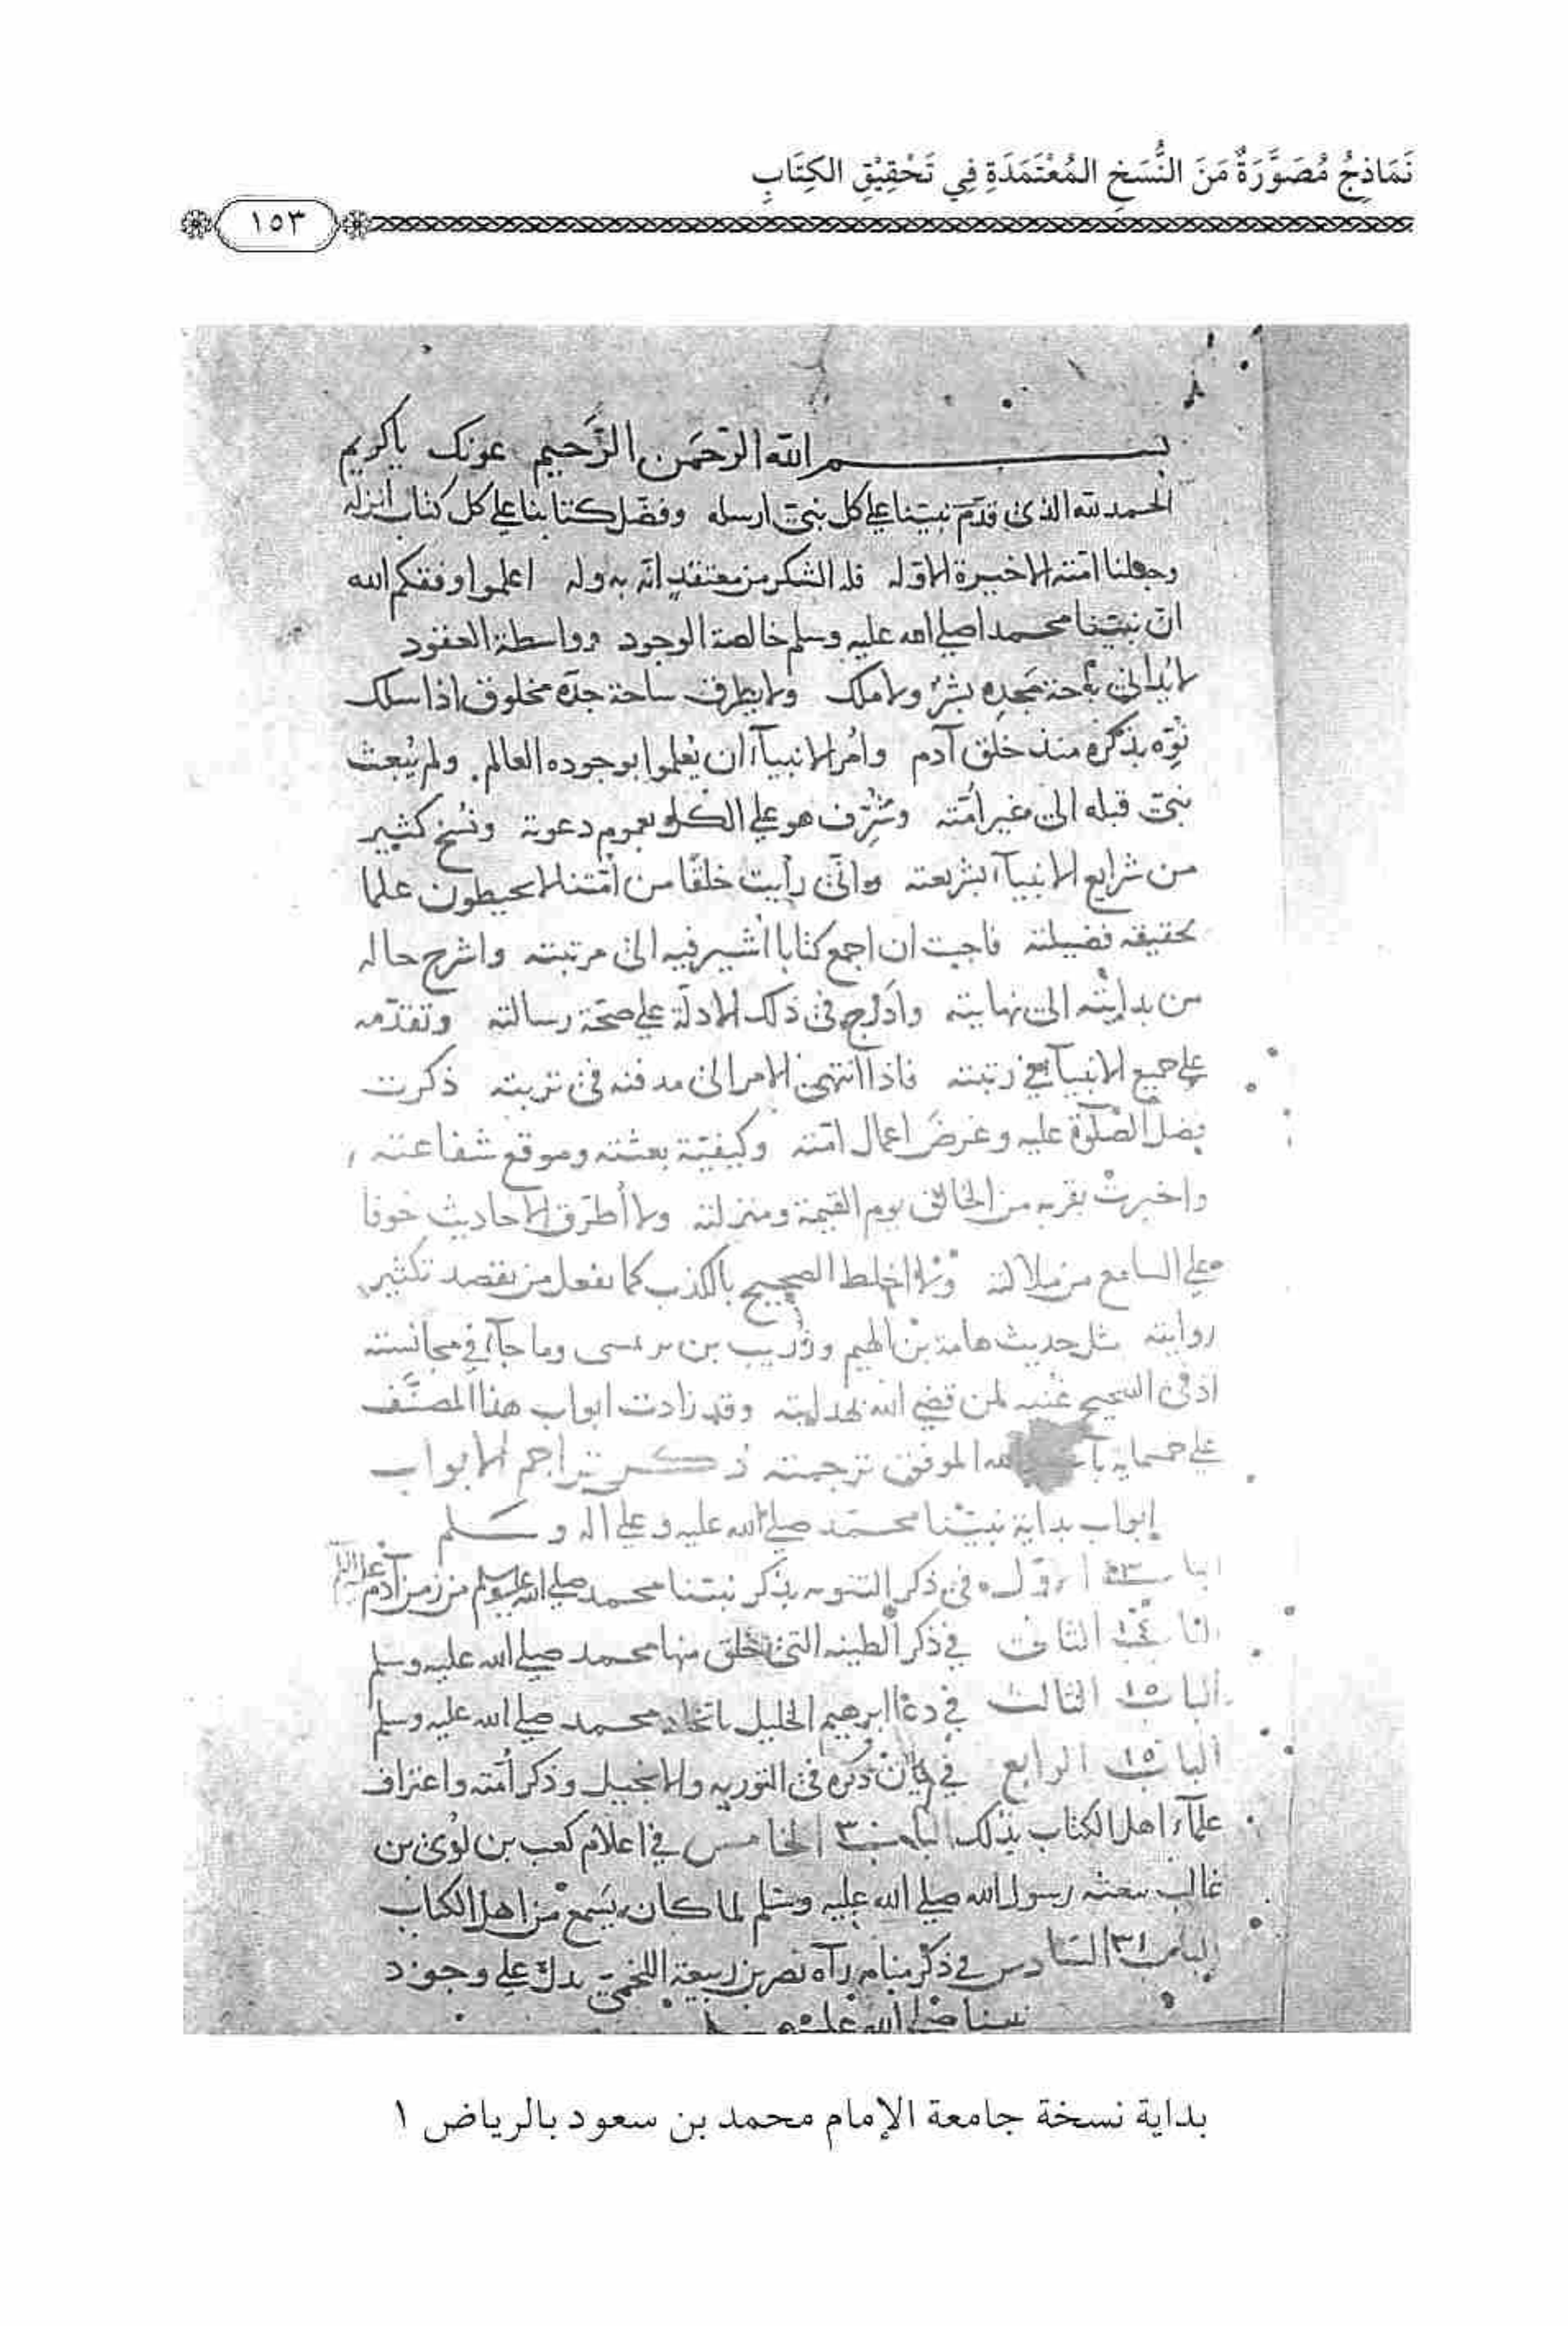 نَمَاذِجُ مُصَوَّرَةٌ مَنَ النُّسَخِ المُعْتَمَدَةِ فِي تَحْقِيْقِ الكِتَابِ
١٥٣
بسم الله الرَّحمَن الرَّحيم عونك ياكريم
الحمد لله الذى قدّم نبيّنا على كل نبىّ ارسله وفضّل كتابنا على كل كتاب انزله
وجعلنا امّته الاخيرة الاوله فله الشكر من معتقدٍ انّه به وله اعلموا وفقكم الله
انّ نبيّنا محمدا صلى الله عليه وسلم خالصة الوجود وواسطة العقود
لا يُدانى مَجدِه بشرٌ ولا ملك ولا يطرف ساحة جدّه مخلوق اذا سلك
نوّه بذكره منذ خلق آدم وامُر الانبيآء ان يُعلموا بوجوده العالم ولم يُبعث
نبىّ قبله الى غير امّته وشُرِّف هو على الكل بعموم دعوته ونُسخ كثير
من شرايع الانبيآء بشريعته وانّى رأيت خلقًا من امّتنا لا يحيطون علما
بحقيقه فضيلته فاحببت ان اجمع كتابا اشير فيه الى مرتبته واشرح حاله
من بدايته الى نهايته وادرج فى ذلك الادلّة على صحّة رسالته وتقدّمه
على جميع الانبيآء فى رتبته فاذا انتهى الامر الى مدفنه فى تربته ذكرت
فضل الصّلوة عليه وعَرضَ اعمال امّته وكيفيّة بعثته وموقع شفاعته
واخبرتْ بقربه من الخالق يوم القيمة ومنزلته ولا أطرّق الاحاديث خوفا
على السامع من ملالته ولا اخلط الصحيح بالكذب كما يفعل من يقصد تكثير
روايته مثل حديث هامة بْن الهيم وزُريب بن برثملى وما جآء فى مجانسته
اذ فى الصحيح غُنية لمن قضى الله بهدايته وقد زادت ابواب هذا المصنَّف
على خمسماية الله الموفق ترجمته ذكر تراجم الابواب
ابواب بداية نبيّنا محمّد صلى الله عليه وعلى اله وسلم
الباب الاول فى ذكر التنويه بذكر نبيّنا محمد صلى الله عليه وسلم من زمن آدم عليه السلم
الباب الثانى فى ذكر الطينه التى خلق منها محمد صلى الله عليه وسلم
الباب الثالث فى دعآ ابرهيم الخليل باتخاد محمد صلى الله عليه وسلم
الباب الرابع فى بيان ذكره فى التوريه والانجيل وذكر اُمّته واعتراف
علمآء اهل الكتاب بذلك الباب الخامس فى اعلام كعب بن لؤىّ بن
غالب ببعثه رسول الله صلى الله عليه وسلم لما كان يَسمع من اهل الكتاب
الباب السّادس فى ذكر منام رآه نصر بن ربيعة اللخمىّ يدلّ على وجود
نبينا صلى الله عليه وسلم
بداية نسخة جامعة الإمام محمد بن سعود بالرياض ١